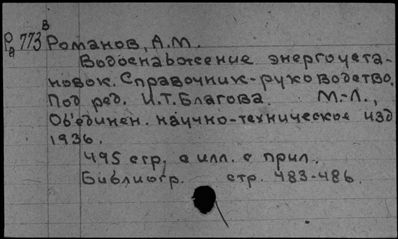 В
Р 773 Романов, А.М.
а
Водоснабжение энергоуста-
новок. Справочник-руководство.
Под ред. И.Т.Благова. М.-Л.,
Об'единен. научно-техническое изд
1936.
495 стр. с илл. с прил.
Библиогр. стр. 483-486.